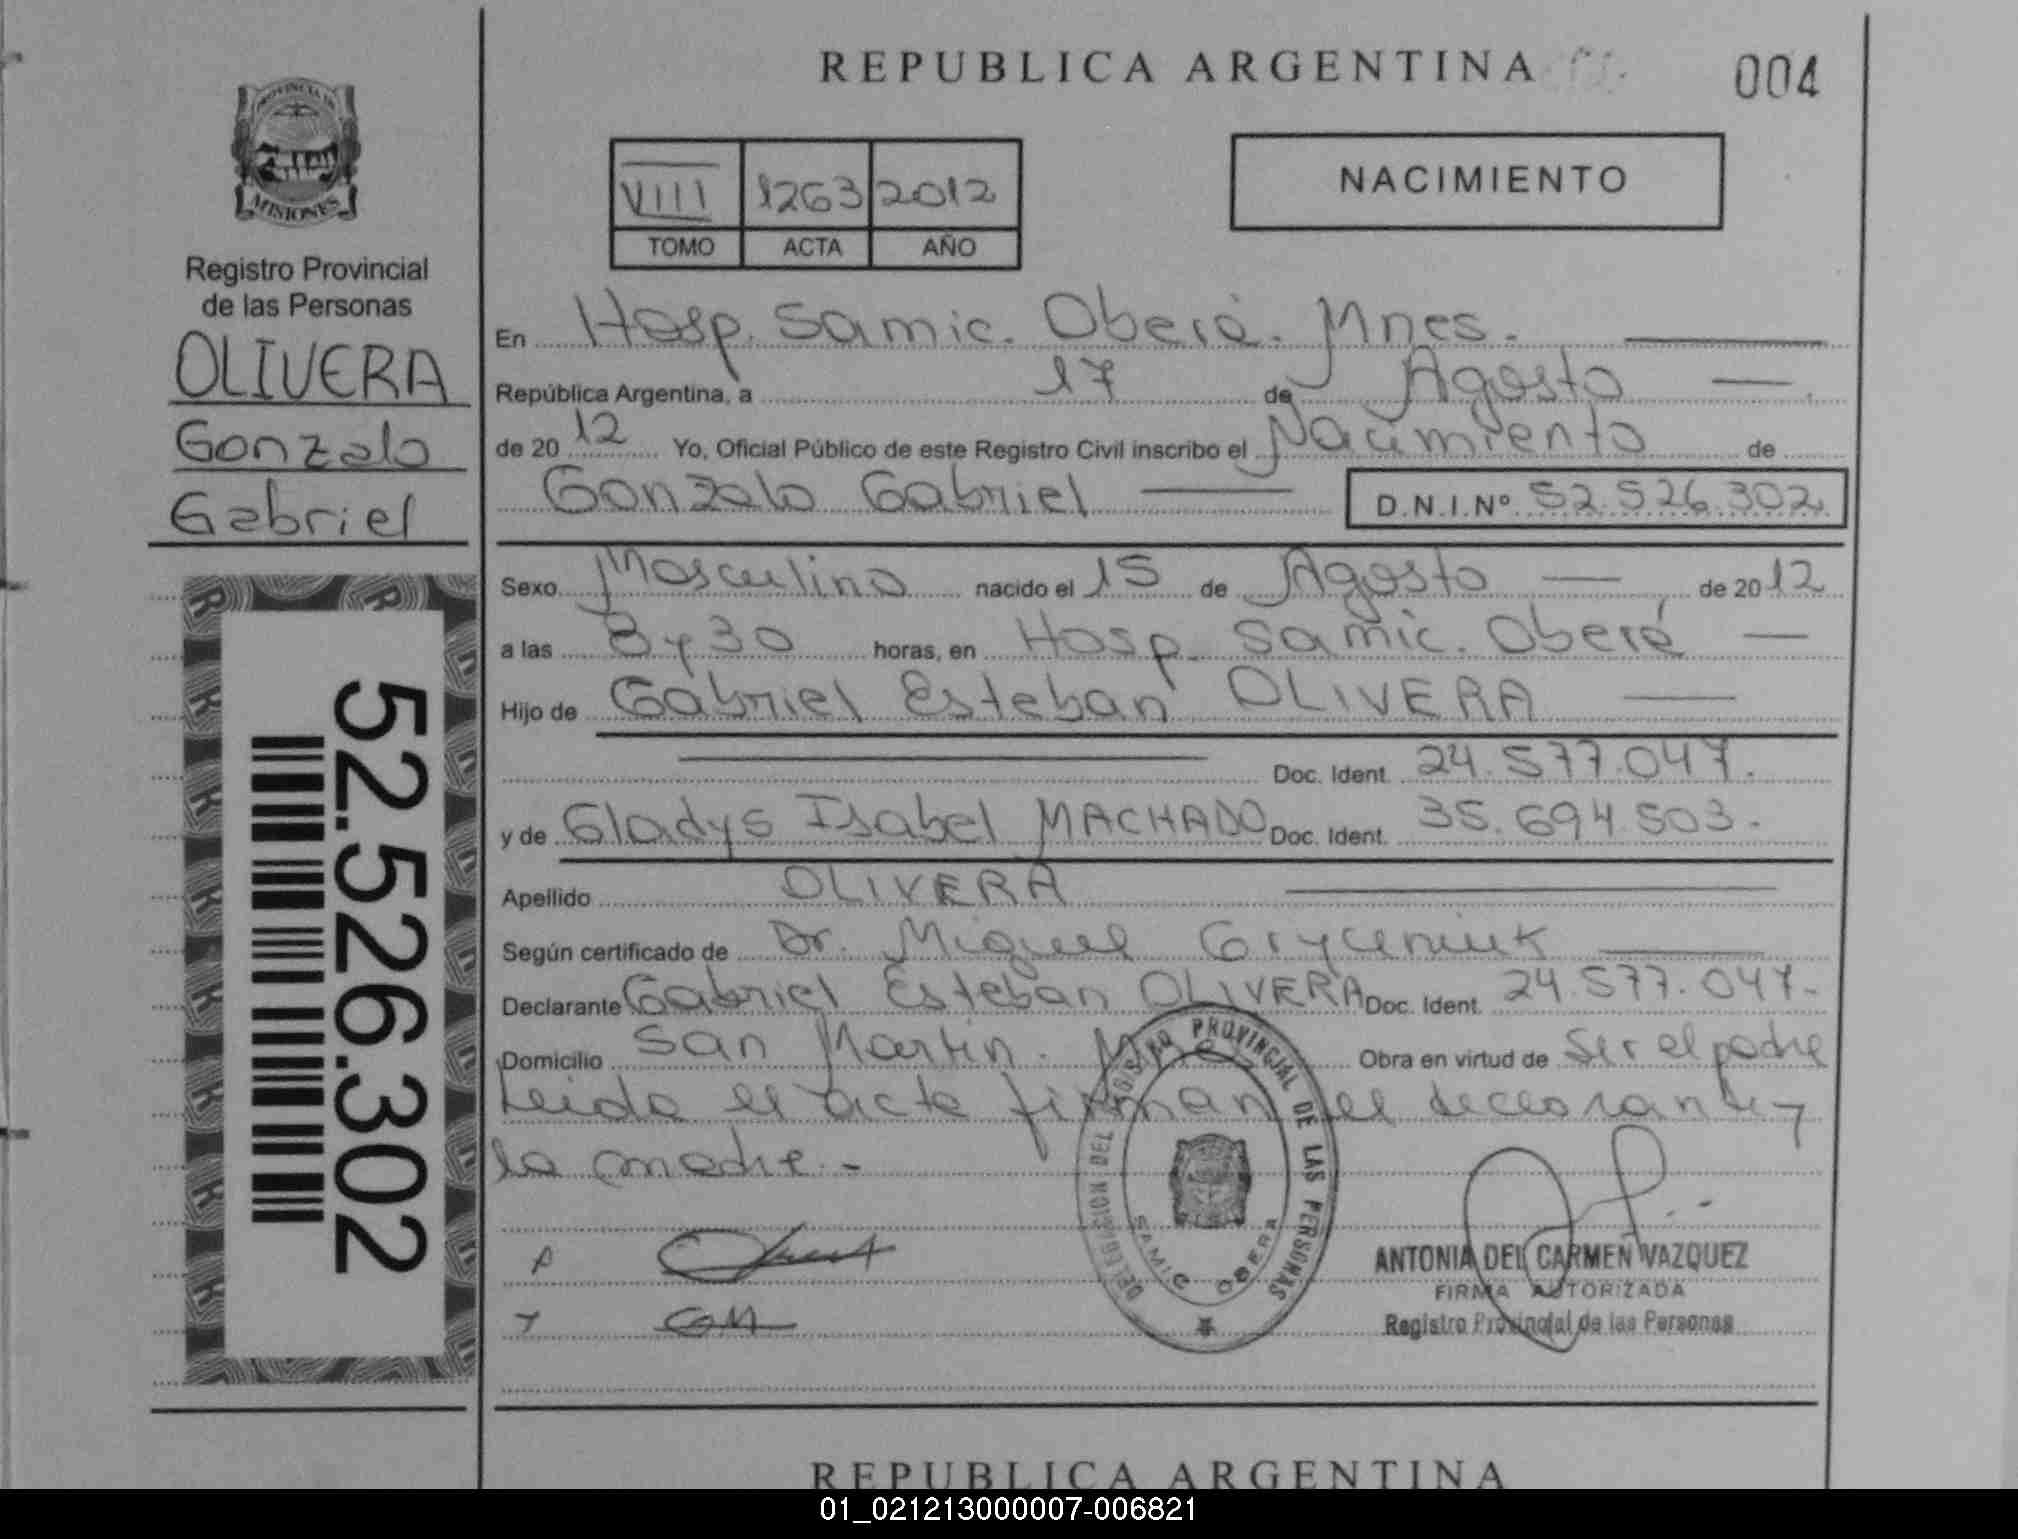 REPUBLICA ARGENTINA
004
PROVINCIA DE
MISIONES
Registro Provincial
de las Personas
OLIVERA
Gonzalo
Gabriel
52.526.302
VIII 1263 2012
TOMO ACTA AÑO
NACIMIENTO
En Hosp. Samic. Oberá. Mnes.
República Argentina, a 17 de Agosto
de 2012 Yo, Oficial Público de este Registro Civil inscribo el Nacimiento de
Gonzalo Gabriel D.N.I.Nº 52.526.302
Sexo Masculino nacido el 15 de Agosto de 2012
a las 8 y 30 horas, en Hosp. Samic. Oberá
Hijo de Gabriel Esteban OLIVERA
Doc. Ident. 24.577.047.
y de Gladys Isabel MACHADO Doc. Ident. 35.694.503.
Apellido OLIVERA
Según certificado de Dr. Miguel
Declarante Gabriel Esteban OLIVERA Doc. Ident. 24.577.047.
Domicilio San Martin. Mnes Obra en virtud de Ser el padre
Leida el acta firman el declarante y
la madre.-
DELEGACION DEL REGISTRO PROVINCIAL DE LAS PERSONAS
SAMIC OBERA
ANTONIA DEL CARMEN VAZQUEZ
FIRMA AUTORIZADA
Registro Provincial de las Personas
REPUBLICA ARGENTINA
01_021213000007-006821